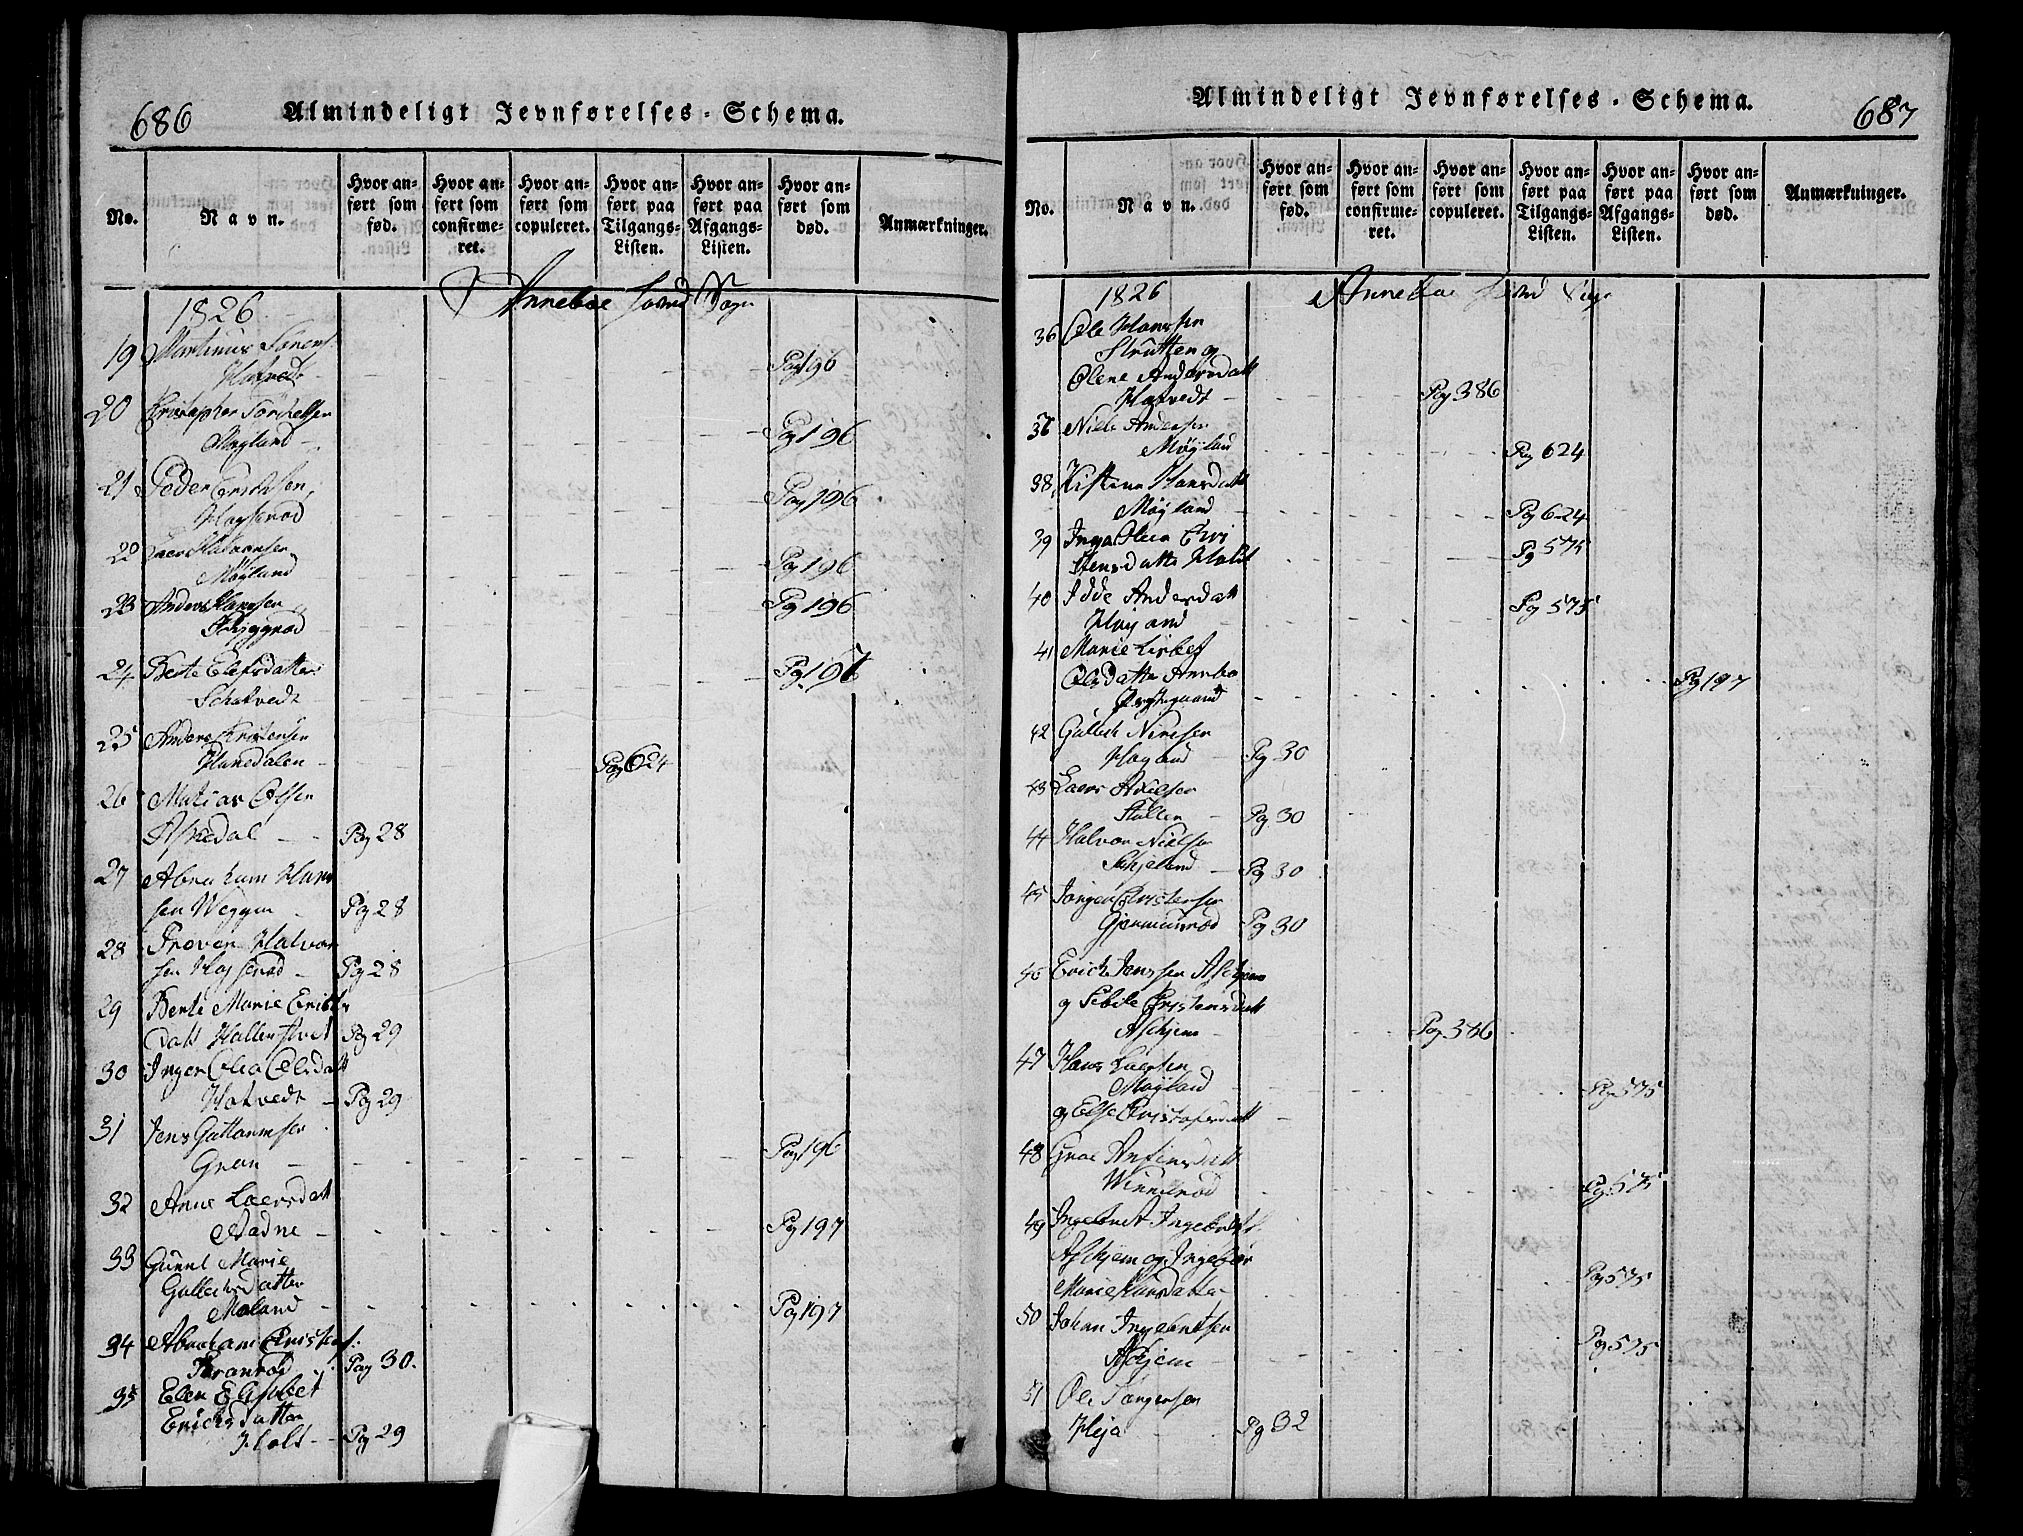 686
Almindeligt Jevnførelses-Schema.
No.
Navn.
Hvor anført som fød.
Hvor anført som confirmeret.
Hvor anført som copuleret.
Hvor anført paa Tilgangs-Listen.
Hvor anført paa Afgangs-Listen.
Hvor anført som død.
Anmærkninger.
1826 Anneboe Sogn
19 Martinus Sørens.
Pag 196
20 Kristopher
Høyland Pag 196
21 Peder Erichsen
Pag 196
22 Halvorsen
Møyland Pag 196
23 Anders Hansen
Pag 196
24 Berte Olefsdatter
Schatvedt Pag 197
25 Anders Kristensen
Hanedalen Pag 624
26 Matias Olsen
Askedal Pag 28
27 Abraham Han
sen Weggen Pag 28
28 Preven Halvor
sen Pag 28
29 Berte Marie Erichs
datt Pag 29
30 Inger Olea Olsdatt
Hotvedt Pag 29
31 Jens Guttormsen
Gran Pag 196
32 Anne Laersdatt
Aadne Pag 197
33 Gunel Marie
Gullichsdatter
Møland Pag 197
34 Abraham Cristens:
Pag 30.
35 Elen Elisabet
Erichsdatter
Holt Pag 29
687
Almindeligt Jevnførelses-Schema.
No.
Navn.
Hvor anført som fød.
Hvor anført som confirmeret.
Hvor anført som copuleret.
Hvor anført paa Tilgangs-Listen.
Hvor anført paa Afgangs-Listen.
Hvor anført som død.
Anmærkninger.
1826 Anneboe
36 Ole Hanssen
Strutten og
Olene Andersdatt
Hotvedt Pag 386
37 Niels Andersen
Møyland Pag 624
38 Kistine Hansdatt
Møyland Pag 624
39 Inger Olea Cri
stensdatte Holt Pg 575
40 Idde Andersdatt
Høyland Pg 575
41 Marie Lisbet
Olsdatter Annebo
Præstegaard Pg 197
42 Gullich Nielsen
Høyland Pg 30
43 Laers
Pg 30
44 Halvor Nielsen
Schjeland Pg 30
45 Jørgen Cristensen
Pg 30
46 Erich Jenssen Aschjem
og Sebile Cristensdatt
Aschjem Pag 386
47 Hans Laersen
Møyland Pg 575
og Else Cristofersdatt
48 Groe Anfinsdatt
Pg 575
49 Ingebret Ingebrets.
Aschjem og Ingebor
Marie Hansdatter Pag 575
50 Johan Ingebretsen
Aschjem Pag 575
51 Ole Jørgensen
Heja Pg 32